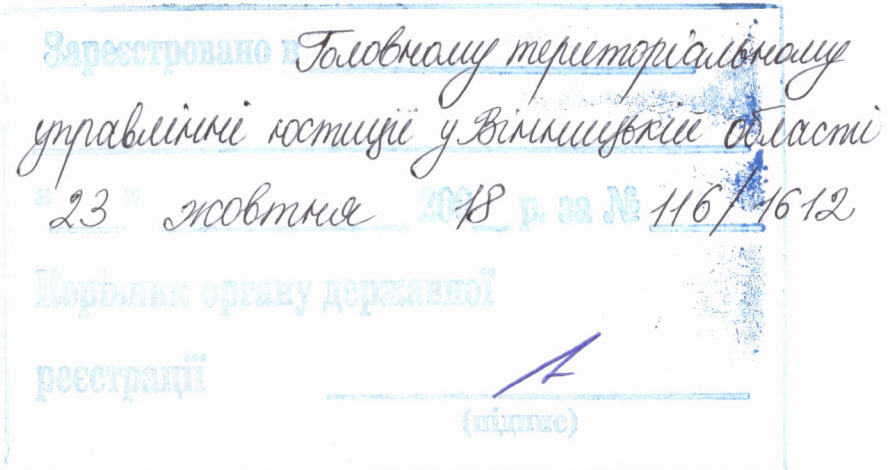 Зареєстровано в Головному територіальному
управлінні юстиції у Вінницькій області
"23" жовтня 2018 р. за № 116/1612
Керівник органу державної
реєстрації
(підпис)